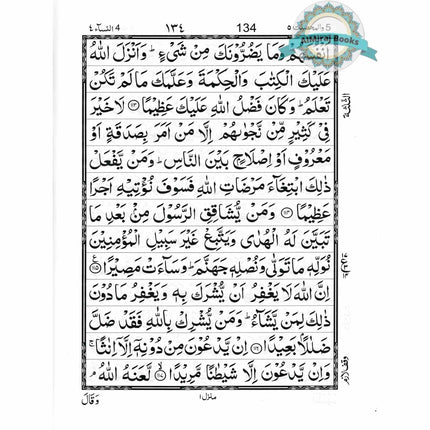 ٤ النسآء 4
١٣٤
134
والمحصنت ٥
AlMiraj Books
اَنْفُسَهُمْ وَمَا يَضُرُّوْنَكَ مِنْ شَيْءٍ ؕ وَاَنْزَلَ اللّٰهُ
عَلَيْكَ الْكِتٰبَ وَالْحِكْمَةَ وَعَلَّمَكَ مَا لَمْ تَكُنْ
تَعْلَمُ ؕ وَكَانَ فَضْلُ اللّٰهِ عَلَيْكَ عَظِيْمًا ۝۱۱۳ لَا خَيْرَ
فِيْ كَثِيْرٍ مِّنْ نَّجْوٰىهُمْ اِلَّا مَنْ اَمَرَ بِصَدَقَةٍ اَوْ
مَعْرُوْفٍ اَوْ اِصْلَاحٍۭ بَيْنَ النَّاسِ ؕ وَمَنْ يَّفْعَلْ
ذٰلِكَ ابْتِغَآءَ مَرْضَاتِ اللّٰهِ فَسَوْفَ نُؤْتِيْهِ اَجْرًا
عَظِيْمًا ۝۱۱۴ وَمَنْ يُّشَاقِقِ الرَّسُوْلَ مِنْۢ بَعْدِ مَا
تَبَيَّنَ لَهُ الْهُدٰى وَيَتَّبِعْ غَيْرَ سَبِيْلِ الْمُؤْمِنِيْنَ
نُوَلِّهٖ مَا تَوَلّٰى وَنُصْلِهٖ جَهَنَّمَ ؕ وَسَآءَتْ مَصِيْرًا ۝۱۱۵
اِنَّ اللّٰهَ لَا يَغْفِرُ اَنْ يُّشْرَكَ بِهٖ وَيَغْفِرُ مَا دُوْنَ
ذٰلِكَ لِمَنْ يَّشَآءُ ؕ وَمَنْ يُّشْرِكْ بِاللّٰهِ فَقَدْ ضَلَّ
ضَلٰلًاۢ بَعِيْدًا ۝۱۱۶ اِنْ يَّدْعُوْنَ مِنْ دُوْنِهٖٓ اِلَّاۤ اِنٰثًا ۚ
وَاِنْ يَّدْعُوْنَ اِلَّا شَيْطٰنًا مَّرِيْدًا ۝۱۱۷ لَّعَنَهُ اللّٰهُ ۘ
الثلثة
وقف لازم
منزل ١
وَقَالَ